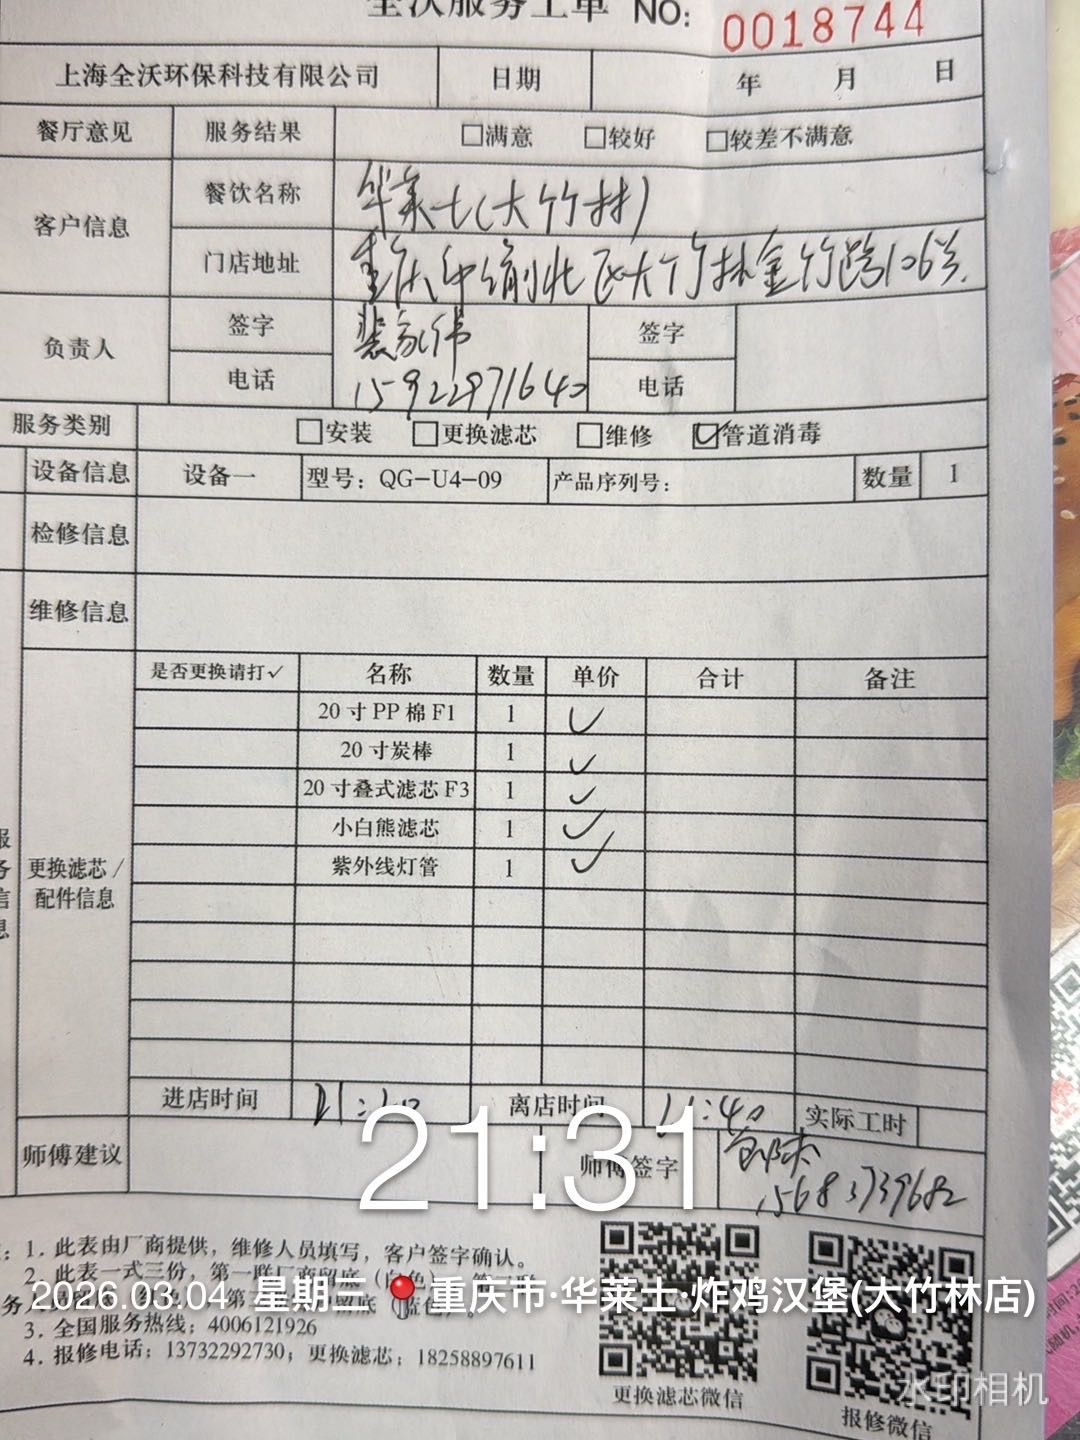 全沃服务工单 NO: 0018744
上海全沃环保科技有限公司 日期 年 月 日
餐厅意见 服务结果 □满意 □较好 □较差不满意
客户信息 餐饮名称 华莱士(大竹林)
门店地址 重庆市渝北区大竹林金竹路106号.
负责人 签字 裴家伟 签字
电话 15922971640 电话
服务类别 □安装 □更换滤芯 □维修 ☑管道消毒
设备信息 设备一 型号: QG-U4-09 产品序列号: 数量 1
检修信息
维修信息
是否更换请打✓ 名称 数量 单价 合计 备注
20寸PP棉F1 1 ✓
20寸炭棒 1 ✓
20寸叠式滤芯F3 1 ✓
小白熊滤芯 1 ✓
紫外线灯管 1 ✓
更换滤芯/
配件信息
进店时间 离店时间 实际工时
21:31
师傅建议 师傅签字
1. 此表由厂商提供，维修人员填写，客户签字确认。
2. 此表一式三份，第一联厂商留底
2026.03.04 星期三 重庆市·华莱士·炸鸡汉堡(大竹林店)
3. 全国服务热线: 4006121926
4. 报修电话: 13732292730; 更换滤芯: 18258897611
更换滤芯微信
报修微信
水印相机